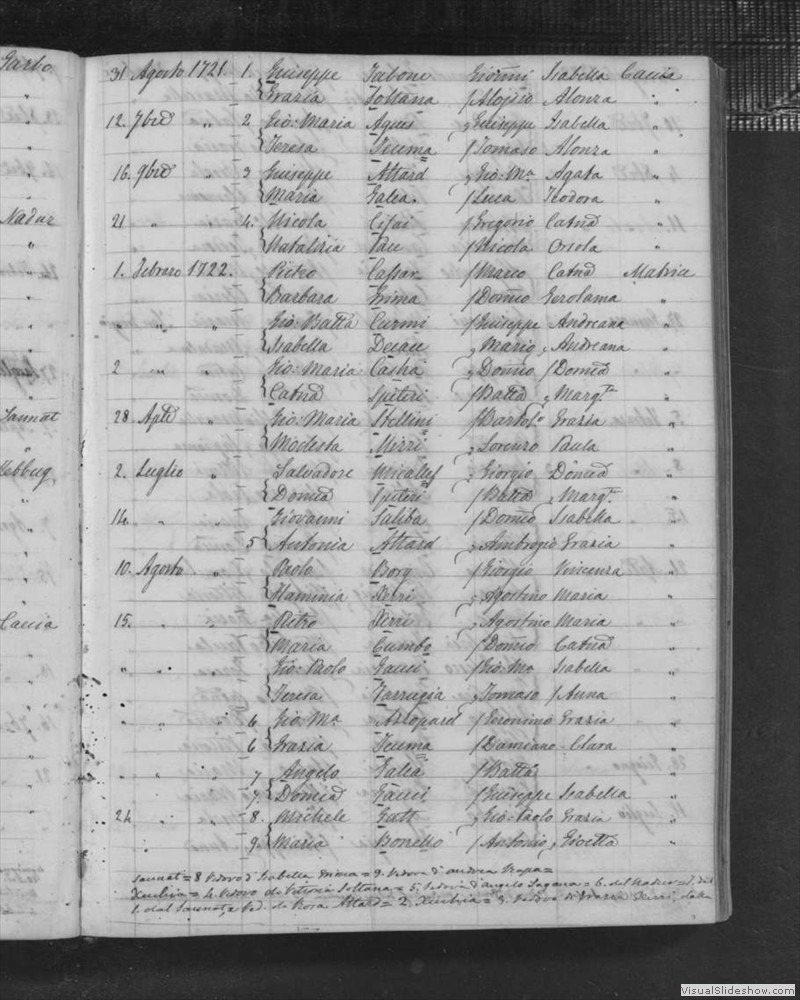 Garbo
Nadur
Sannat
Caccia
31 Agosto 1721. 1. Giuseppe Isabella Caccia
Grazia Soltana Aloysio Alonza "
12. 7bre " 2. Gio: Maria Agius Giuseppe Isabella "
Teresa Teuma Tomaso Alonza "
16. 9bre " 3 Giuseppe Attard Gio: Ma Agata "
Maria Galea Luca Teodora "
21 " " 4. Nicola Gregorio Catna "
Pace Nicola Orsola "
1. Febraro 1722. Pietro Cassar Marco Catna Matrice
Barbara Grima Domco Gerolama "
" " " Gio: Batta Curmi Giuseppe Andreana "
Isabella Mario Andreana "
2 " " Gio: Maria Casha Domco Domca "
Catna Spiteri Batta Margta "
28 Aple " Gio: Maria Stellini Bartolo Grazia "
Modesta Lorenzo Paula "
2. Luglio " Salvadore Micallef Giorgio Domca "
Domca Spiteri Batta Margta "
14 " " Giovanni Saliba Domco Isabella "
5 Antonia Attard Ambrogio Grazia "
10. Agosto " Paolo Borg Giorgio Vincenza "
Flaminia Xerri Agostino Maria "
15. " " Pietro Xerri Agostino Maria "
Maria Cumbo Domco Catna "
" " Gio: Paolo Gauci Gio: Ma Isabella "
Teresa Farrugia Tomaso Anna "
" " " 6 Gio: Ma Axiopard Geronimo Grazia "
6 Grazia Teuma Damiano Clara "
" " 7 Angelo Galea Batta "
7. Domca Gauci Giuseppe Isabella "
24 " " 8. Michele Gatt Gio: Paolo Grazia "
9. Maria Bonello Antonio Gioetta "
Sannat = 8 Vedovo d'Isabella = 9. Vedova d'Andrea
= 4. Vedovo di Vittoria Soltana = 5. Vedova d'Angelo = 6. del
1. dal Vedo di Rosa Attard = 2. = 3. Vedovo di Grazia
VisualSlideshow.com